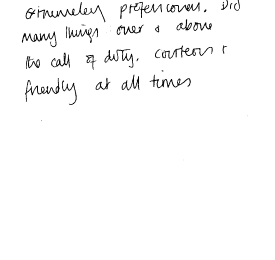 extremely professional. Did
many things over & above
the call of duty. courteous &
friendly at all times